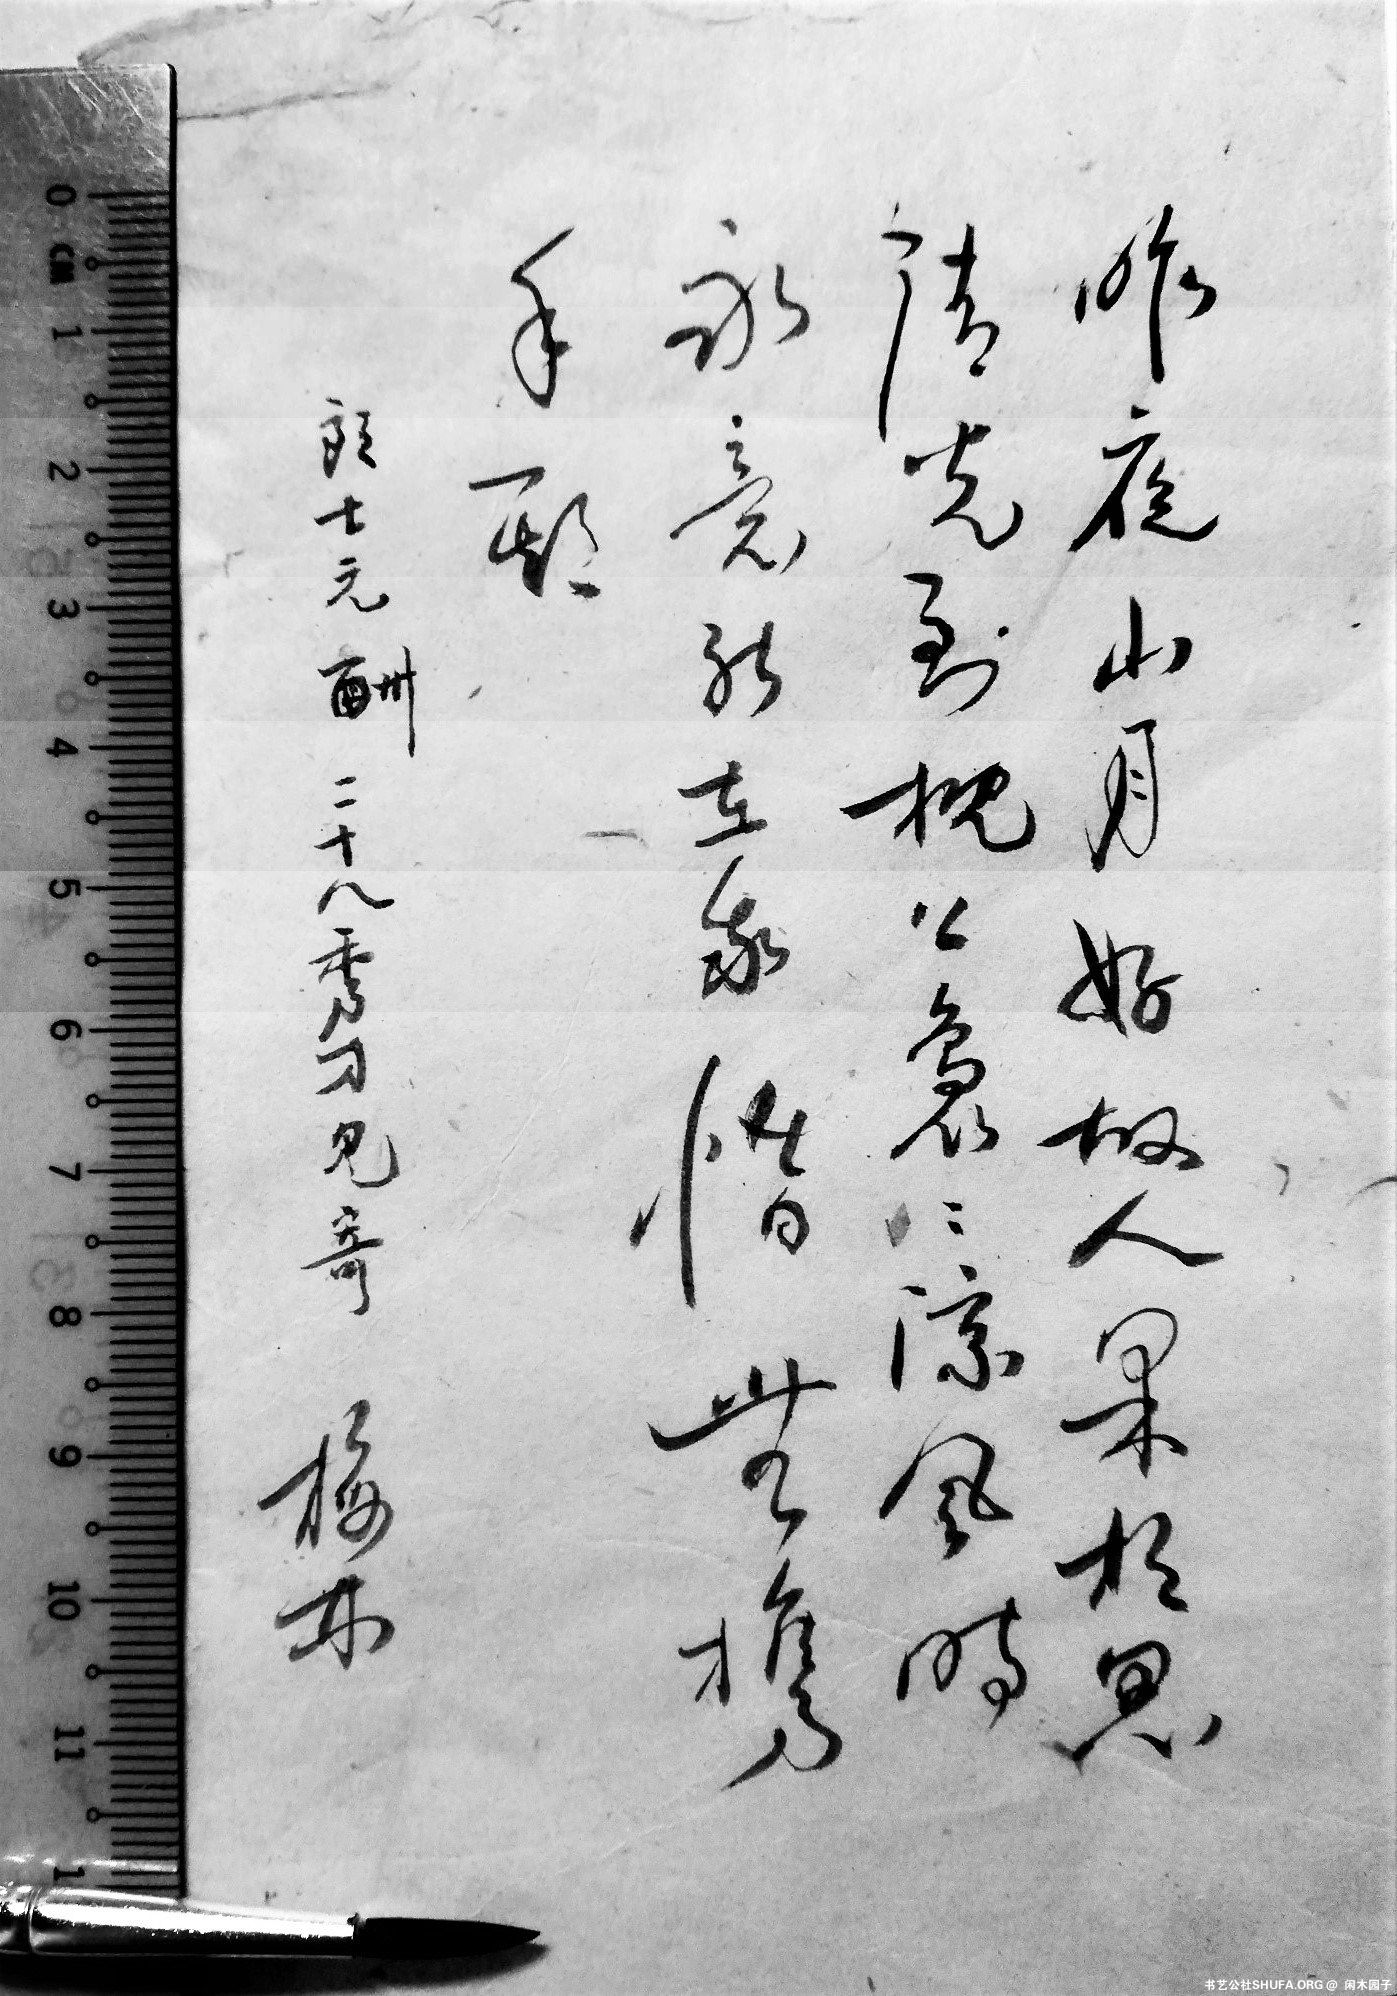 昨夜山月好故人果相思
清光到枕上裊〻涼風時
永意能在我惜無攜
手期
郎士元 酬二十八秀才見寄 梅林
0 CM 1 2 3 4 5 6 7 8 9 10 11 1
书艺公社SHUFA.ORG @ 闲木园子